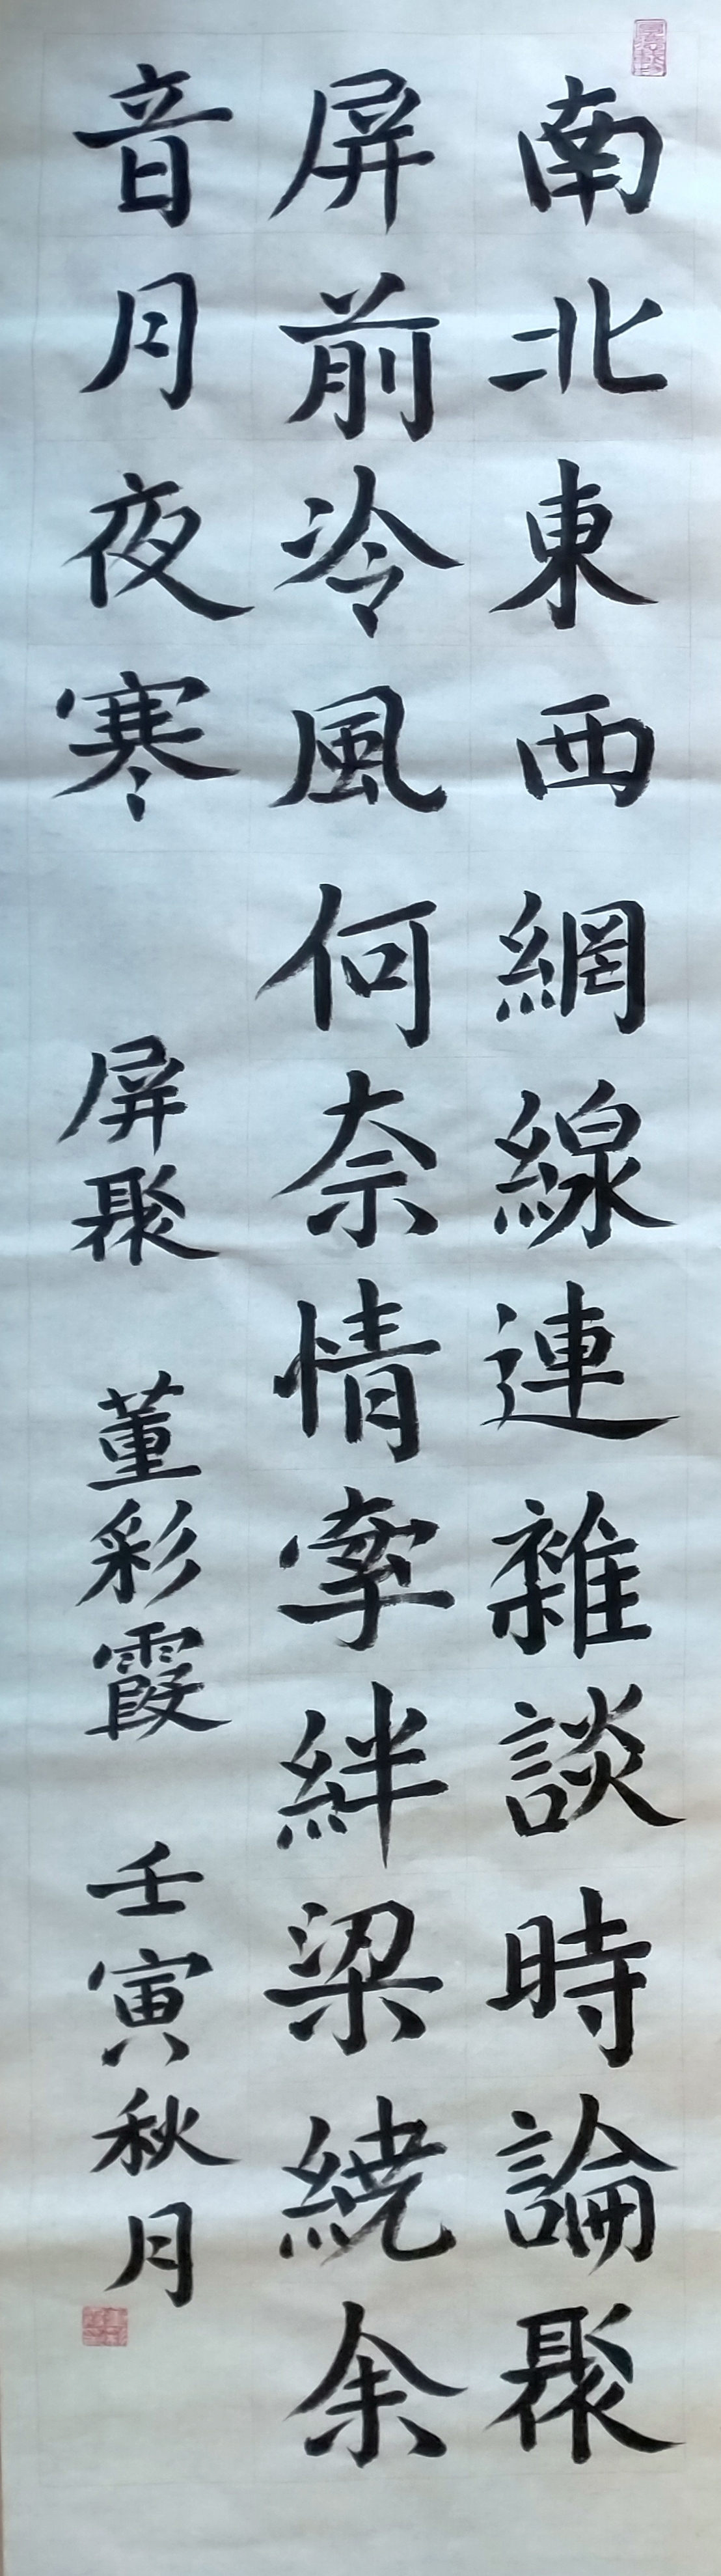 南北東西網線連雜談時論聚
屏前冷風何奈情牽絆梁繞余
音月夜寒 屏聚 董彩霞 壬寅秋月